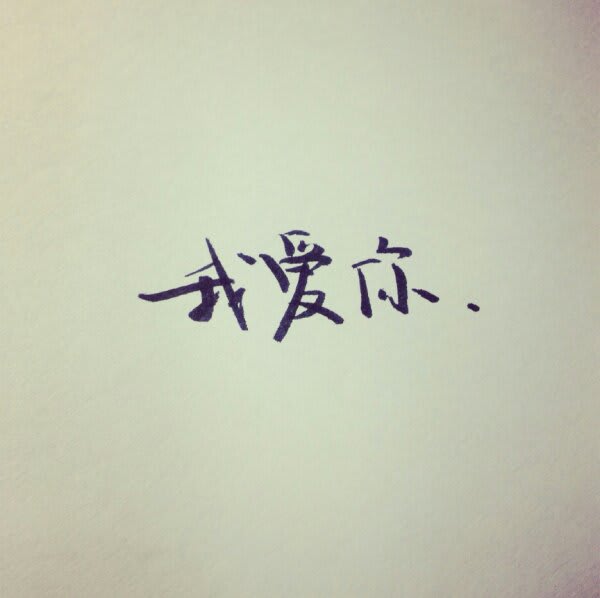 我爱你.